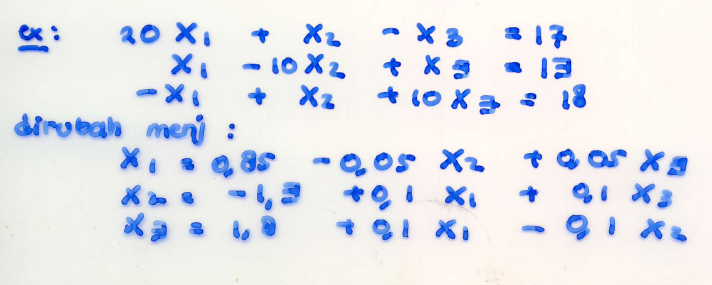 ex: 20 X₁ + X₂ - X₃ = 17
X₁ - 10 X₂ + X₃ = 13
-X₁ + X₂ + 10 X₃ = 18
dirubah menj :
X₁ = 0,85 - 0,05 X₂ + 0,05 X₃
X₂ = -1,3 + 0,1 X₁ + 0,1 X₃
X₃ = 1,8 + 0,1 X₁ - 0,1 X₂